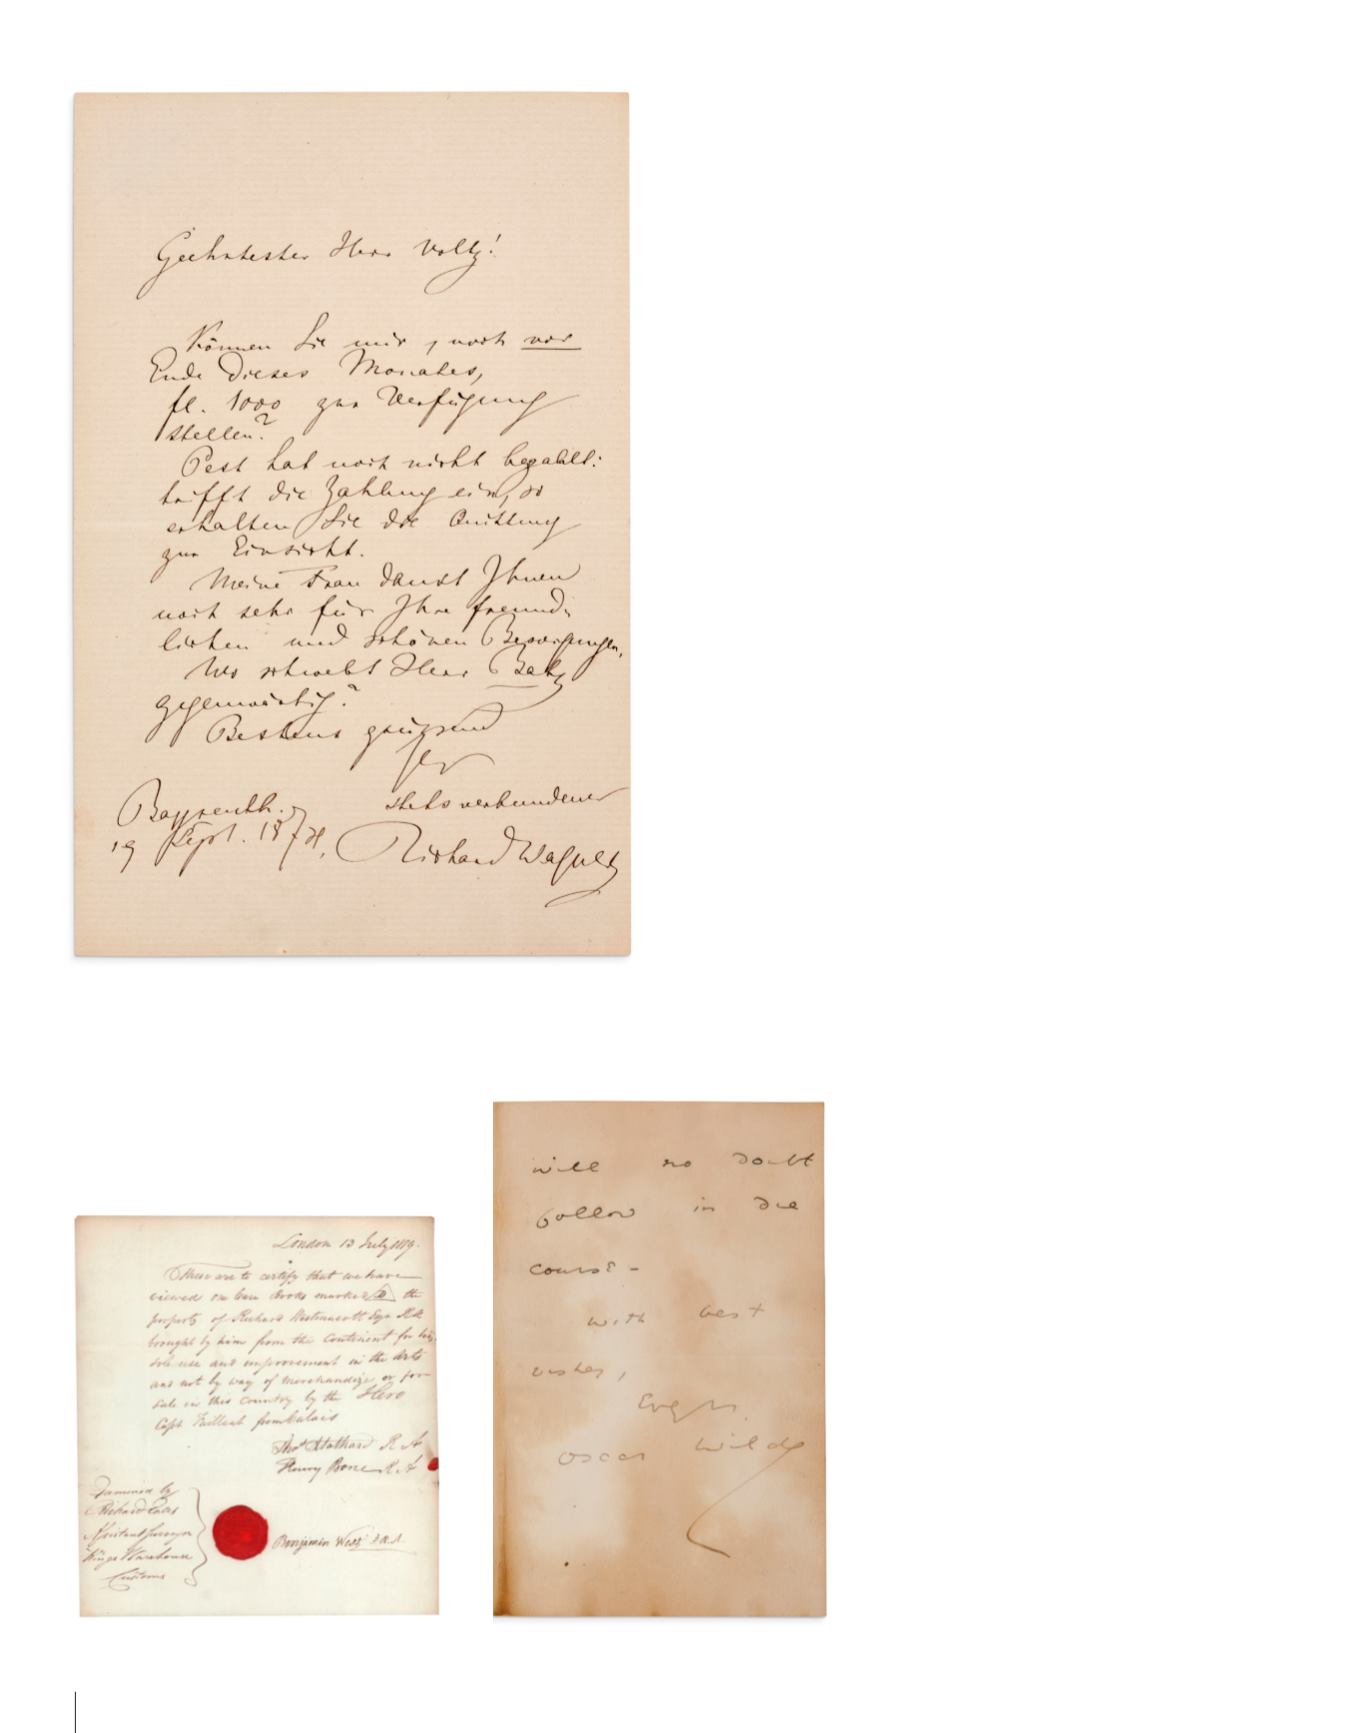 Geehrtester Herr Voltz!
Können Sie mir, noch vor
Ende dieses Monates,
fl. 1000 zur Verfügung
stellen?
Pest hat noch nicht bezahlt:
trifft die Zahlung ein, so
erhalten Sie die Quittung
zur Einsicht.
Meine Frau dankt Ihnen
noch sehr für Ihre freund-
lichen und schönen Besorgungen.
Wo schwebt Herr Batz
gegenwärtig?
Bestens grüssend
Ihr
stets verbundener
Richard Wagner
Bayreuth.
19 Sept. 1874.
London 13 July 1819.
These are to certify that we have
viewed one Case Books marked the
property of Richard Westmacott Esqr RA
brought by him from the Continent for his
sole use and improvement in the Arts
and not by way of Merchandize or for
Sale in this Country by the Hero
Capt from Calais
Thos Stothard R A
Henry Bone R A
Examined by
Richard
Assistant Surveyor
Kings Warehouse
Customs
Benjamin West
will no doubt
follow in due
course -
with best
wishes,
Oscar Wilde